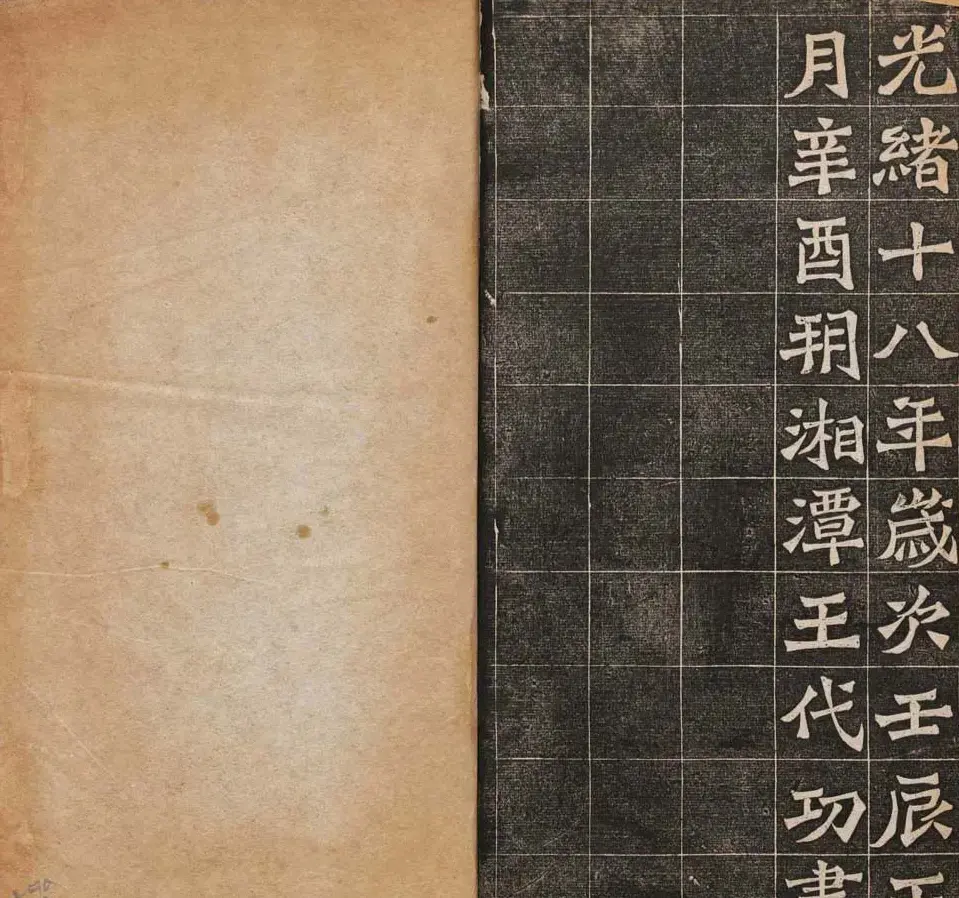 光緒十八年歲次壬辰
月辛酉朔湘潭王代功書